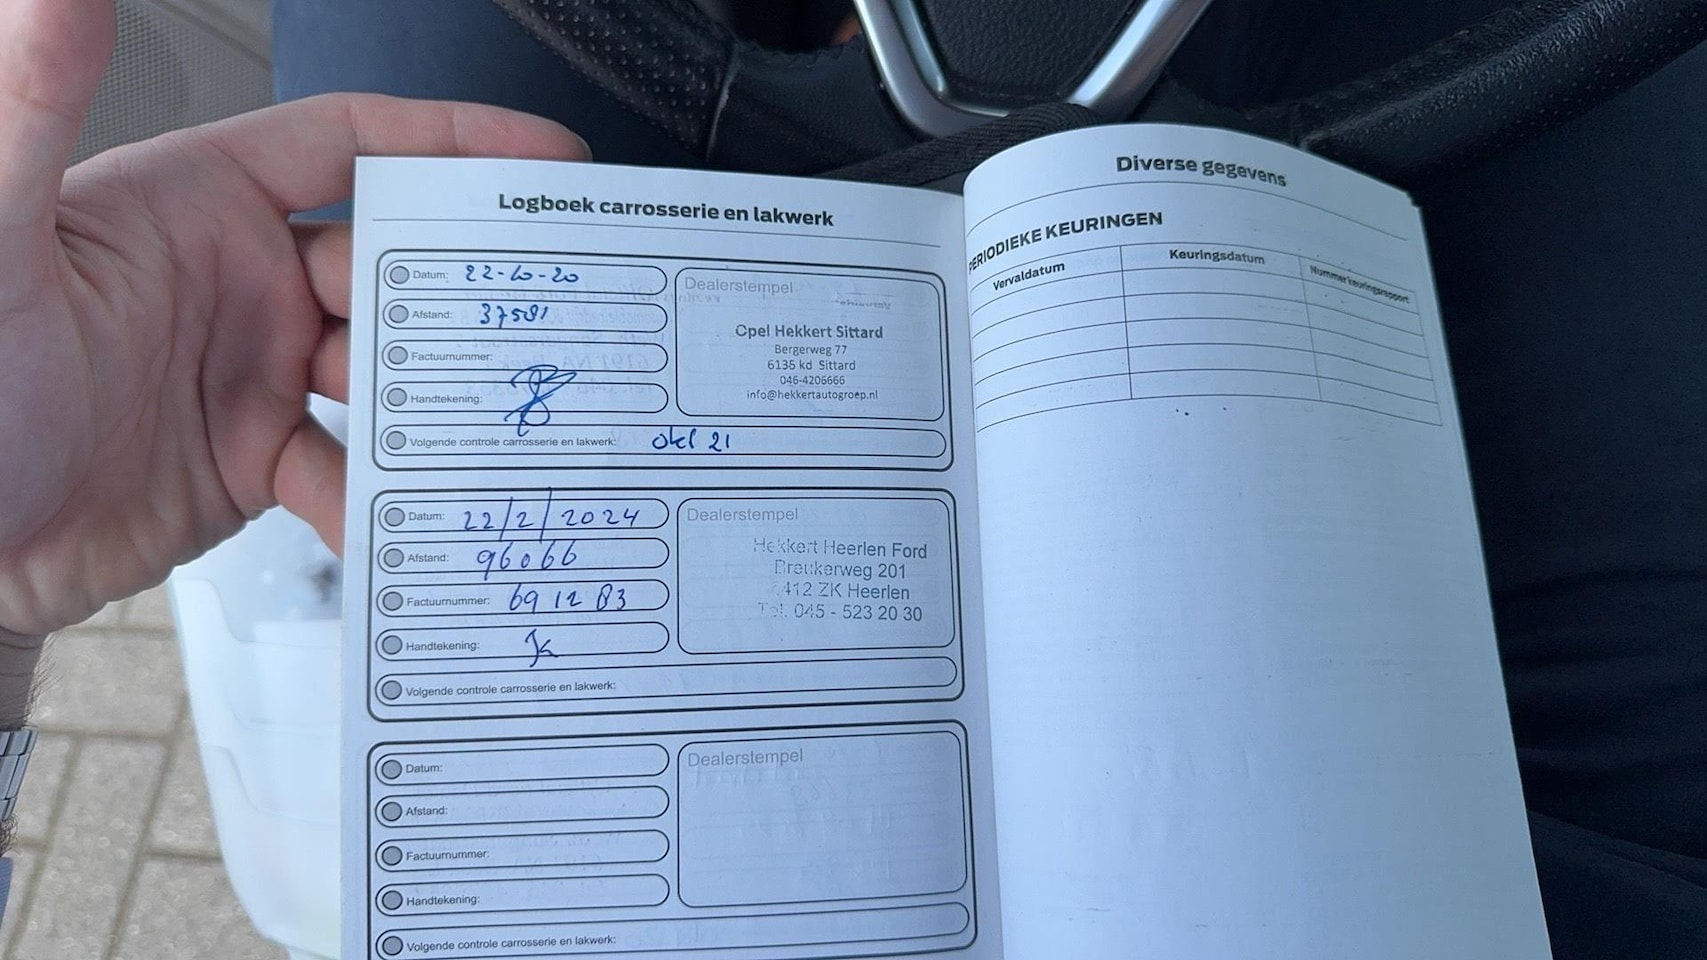 Logboek carrosserie en lakwerk
Datum: 22-10-20
Afstand: 37581
Factuurnummer:
Handtekening:
Volgende controle carrosserie en lakwerk: okt 21
Dealerstempel
Opel Hekkert Sittard
Bergerweg 77
6135 kd Sittard
046-4206666
info@hekkertautogroep.nl
Datum: 22/2/2024
Afstand: 96066
Factuurnummer: 691283
Handtekening:
Volgende controle carrosserie en lakwerk:
Dealerstempel
Hekkert Heerlen Ford
Breukerweg 201
6412 ZK Heerlen
Tel. 045 - 523 20 30
Datum:
Afstand:
Factuurnummer:
Handtekening:
Volgende controle carrosserie en lakwerk:
Dealerstempel
Diverse gegevens
PERIODIEKE KEURINGEN
Vervaldatum Keuringsdatum Nummer keuringsrapport